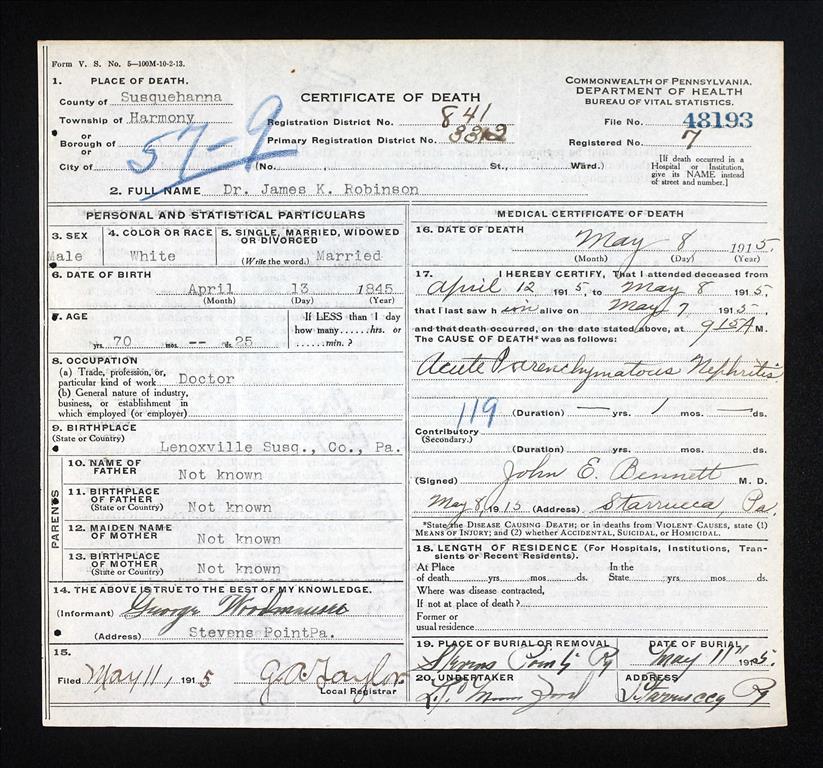 Form V. S. No. 5—100M-10-2-13.
1. PLACE OF DEATH.
County of Susquehanna
Township of Harmony
or
Borough of
or
City of
57-9
CERTIFICATE OF DEATH
Registration District No. 841
Primary Registration District No. 3312
(No. , St., Ward.)
COMMONWEALTH OF PENNSYLVANIA.
DEPARTMENT OF HEALTH
BUREAU OF VITAL STATISTICS.
File No. 48193
Registered No. 7
[If death occurred in a
Hospital or Institution,
give its NAME instead
of street and number.]
2. FULL NAME Dr. James K. Robinson
PERSONAL AND STATISTICAL PARTICULARS
3. SEX
Male
4. COLOR OR RACE
White
5. SINGLE, MARRIED, WIDOWED
OR DIVORCED
(Write the word.) Married
6. DATE OF BIRTH
April 13 1845
(Month) (Day) (Year)
7. AGE
70 yrs. -- ds. 25
If LESS than 1 day
how many......hrs. or
......min.?
8. OCCUPATION
(a) Trade, profession, or
particular kind of work Doctor
(b) General nature of industry,
business, or establishment in
which employed (or employer)
9. BIRTHPLACE
(State or Country)
Lenoxville Susq., Co., Pa.
PARENTS
10. NAME OF
FATHER
Not known
11. BIRTHPLACE
OF FATHER
(State or Country)
Not known
12. MAIDEN NAME
OF MOTHER
Not known
13. BIRTHPLACE
OF MOTHER
(State or Country)
Not known
14. THE ABOVE IS TRUE TO THE BEST OF MY KNOWLEDGE.
(Informant) George
(Address) Stevens PointPa.
15.
Filed May 11, 1915 G. A. Taylor
Local Registrar
MEDICAL CERTIFICATE OF DEATH
16. DATE OF DEATH
May 8 1915.
(Month) (Day) (Year)
17. I HEREBY CERTIFY, That I attended deceased from
April 12 1915, to May 8 1915,
that I last saw him alive on May 7 1915.
and that death occurred, on the date stated above, at 915A M.
The CAUSE OF DEATH* was as follows:
Acute Parenchymatous Nephritis
119
(Duration) — yrs. 1 mos. — ds.
Contributory
(Secondary.)
(Duration) yrs. mos. ds.
(Signed) John E. Bennett M. D.
May 8, 1915 (Address) Starrucca, Pa.
*State the DISEASE CAUSING DEATH; or in deaths from VIOLENT CAUSES, state (1)
MEANS OF INJURY; and (2) whether ACCIDENTAL, SUICIDAL, or HOMICIDAL.
18. LENGTH OF RESIDENCE (For Hospitals, Institutions, Tran-
sients or Recent Residents).
At Place
of death......yrs......mos......ds.
In the
State......yrs......mos......ds.
Where was disease contracted,
If not at place of death?
Former or
usual residence
19. PLACE OF BURIAL OR REMOVAL
Stevens Point Pa
DATE OF BURIAL
May 11th 1915.
20. UNDERTAKER
ADDRESS
Starrucca Pa